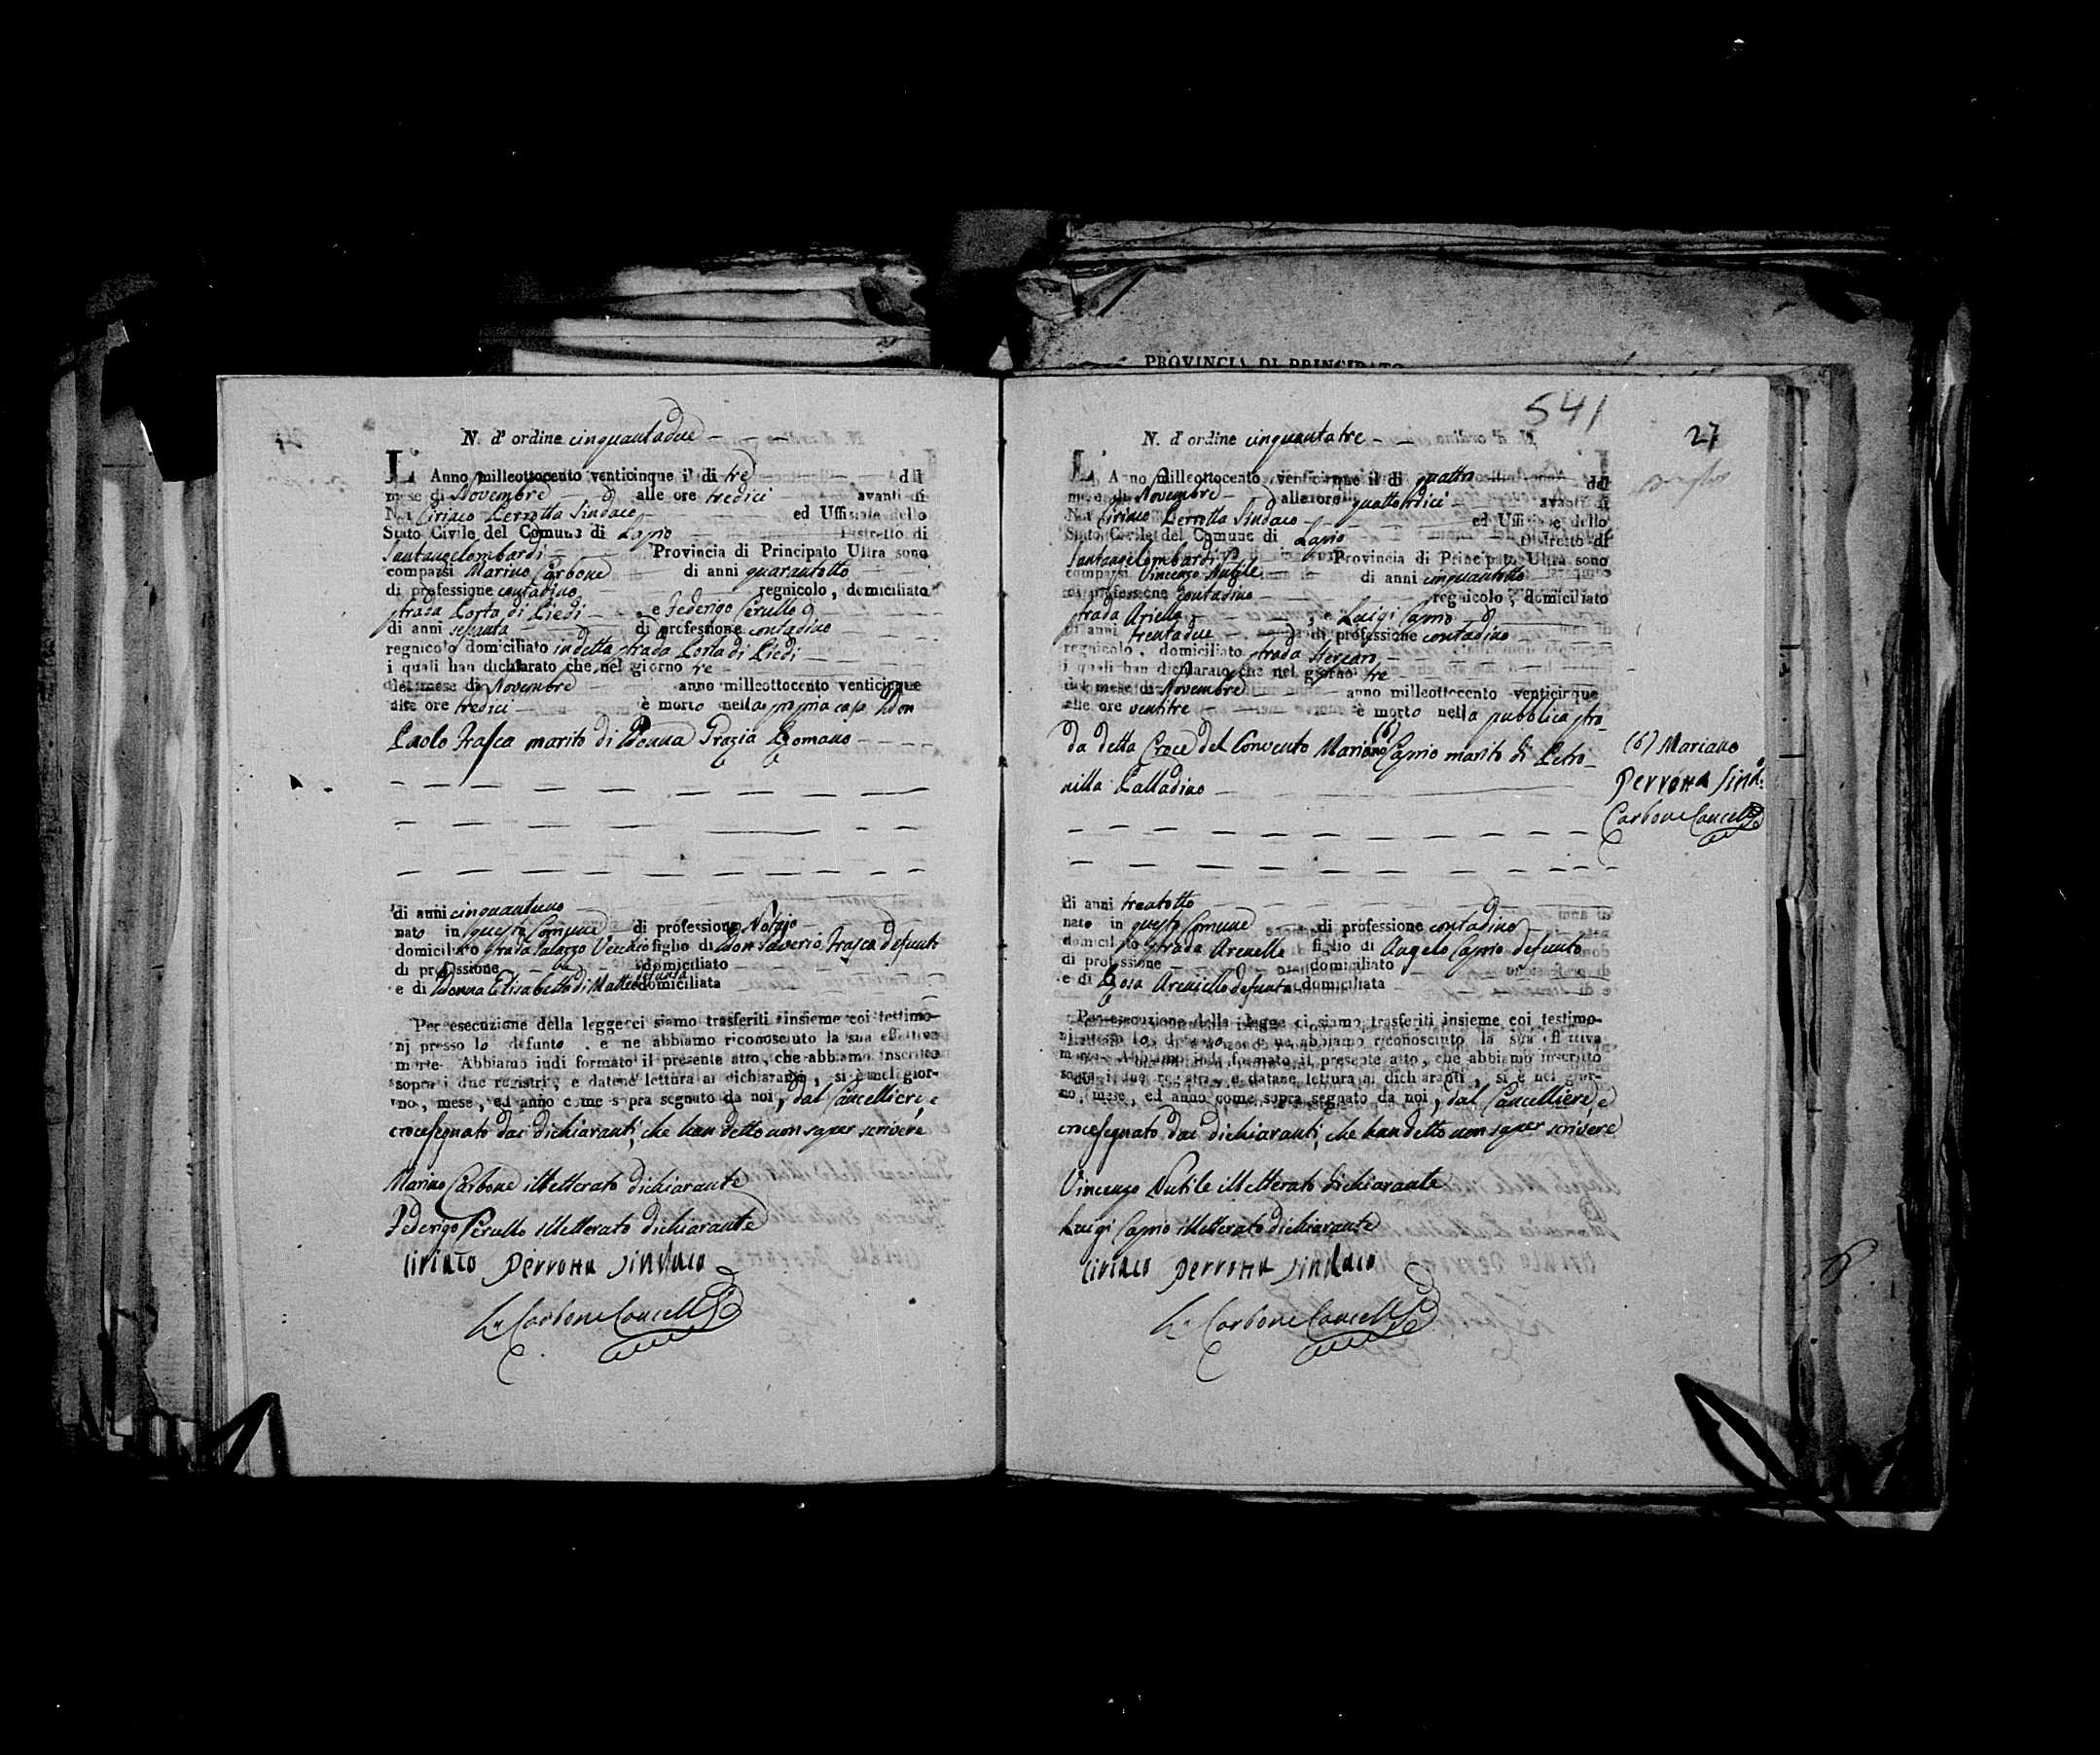 PROVINCIA DI PRINCIPATO
N. d'ordine cinquantadue
L'Anno milleottocento venticinque il di tre del
mese di Novembre alle ore tredici avanti di
Noi Ciriaco Perrotta Sindaco ed Uffiziale dello
Stato Civile del Comune di Lapio Distretto di
Santangelombardi Provincia di Principato Ultra sono
comparsi Marino Carbone di anni quarantotto
di professione contadino regnicolo, domiciliato
strada Porta di Piedi, e Federigo Cerullo
di anni sessanta di professione contadino
regnicolo domiciliato in detta strada Porta di Piedi
i quali han dichiarato che nel giorno tre
del mese di Novembre anno milleottocento venticinque
alle ore tredici è morto nella propria casa Don
Paolo Frasca marito di Donna Grazia Romano
di anni cinquantuno
nato in questo Comune di professione Notajo
domiciliato strada Palazzo Vecchio figlio di Don Saverio Frasca defunto
di professione domiciliato
e di Donna Elisabetta di Matteo defunta domiciliata
Per esecuzione della legge ci siamo trasferiti insieme coi testimo-
nj presso lo defunto e ne abbiamo riconosciuto la sua effettiva
morte. Abbiamo indi formato il presente atto, che abbiamo inscritto
sopra i due registri, e datene lettura ai dichiaranti, si è nel gior-
no, mese, ed anno come sopra segnato da noi, dal Cancelliere, e
crocesegnato dai dichiaranti, che han detto non saper scrivere
Marino Carbone illetterato dichiarante
Federigo Cerullo illetterato dichiarante
Ciriaco Perrotta Sindaco
Carbone Cancell.
541
27
N. d'ordine cinquantatre
L'Anno milleottocento venticinque il di quattro del
mese di Novembre alle ore quattordici avanti di
Noi Ciriaco Perrotta Sindaco ed Uffiziale dello
Stato Civile del Comune di Lapio Distretto di
Santangelombardi Provincia di Principato Ultra sono
comparsi Vincenzo Nutile di anni cinquantotto
di professione contadino regnicolo, domiciliato
strada Ariella, e Luigi Caprio
di anni trentadue di professione contadino
regnicolo, domiciliato strada
i quali han dichiarato che nel giorno tre
del mese di Novembre anno milleottocento venticinque
alle ore ventitre è morto nella pubblica stra-
da detta Croce del Convento Mariano (6) Caprio marito di Petro-
nilla Palladino
(6) Mariano
Perrotta Sind.
Carbone Cancell.
di anni trentotto
nato in questo Comune di professione contadino
domiciliato strada Arenella figlio di Angelo Caprio defunto
di professione domiciliato
e di Rosa Areniello defunta domiciliata
Per esecuzione della legge ci siamo trasferiti insieme coi testimo-
nj presso lo defunto e ne abbiamo riconosciuto la sua effettiva
morte. Abbiamo indi formato il presente atto, che abbiamo inscritto
sopra i due registri, e datane lettura ai dichiaranti, si è nel gior-
no, mese, ed anno come sopra segnato da noi, dal Cancelliere, e
crocesegnato dai dichiaranti, che han detto non saper scrivere
Vincenzo Nutile illetterato dichiarante
Luigi Caprio illetterato dichiarante
Ciriaco Perrotta Sindaco
Carbone Cancell.